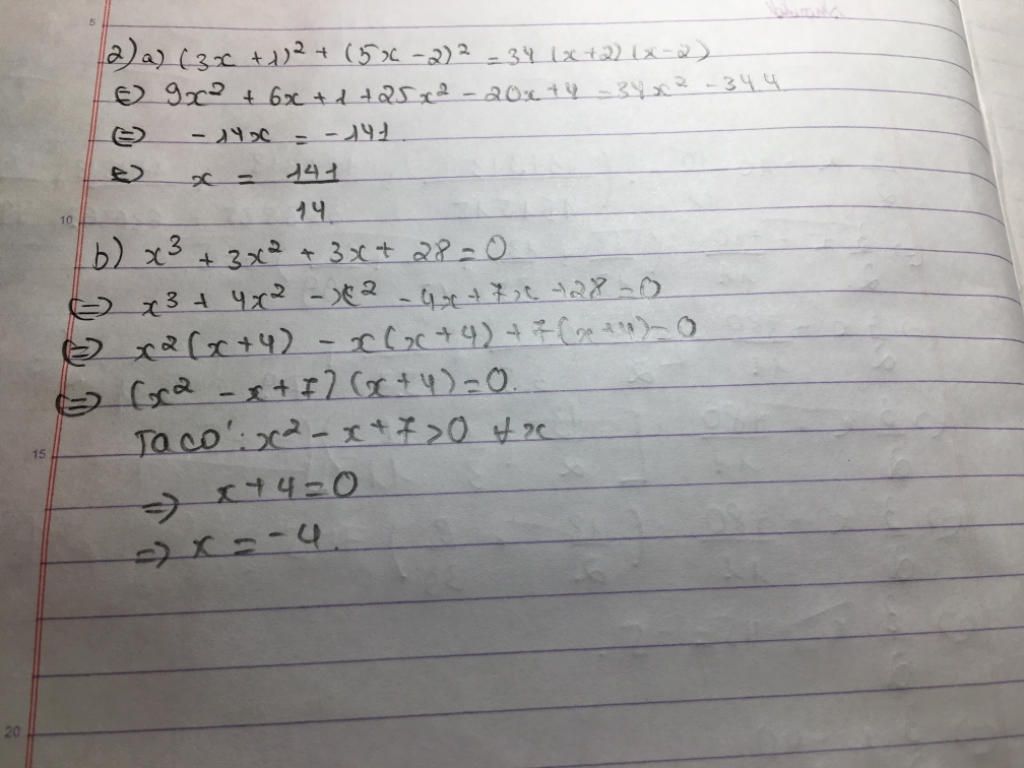 5
2) a) (3x + 1)² + (5x - 2)² = 34 (x+2) (x-2)
⇔ 9x² + 6x + 1 + 25x² - 20x + 4 = 34x² - 34 4
⇔ - 14x = - 141.
⇔ x = 141
10 14.
b) x³ + 3x² + 3x + 28 = 0
⇔ x³ + 4x² - x² - 4x + 7x + 28 = 0
⇔ x² (x+4) - x (x+4) + 7 (x+4) = 0
⇔ (x² - x + 7) (x+4) = 0.
15 Ta có: x² - x + 7 > 0 ∀x
⇒ x + 4 = 0
⇒ x = -4.
20